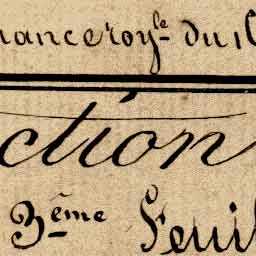 nance roy.le du 1
ction
3ème Feuil